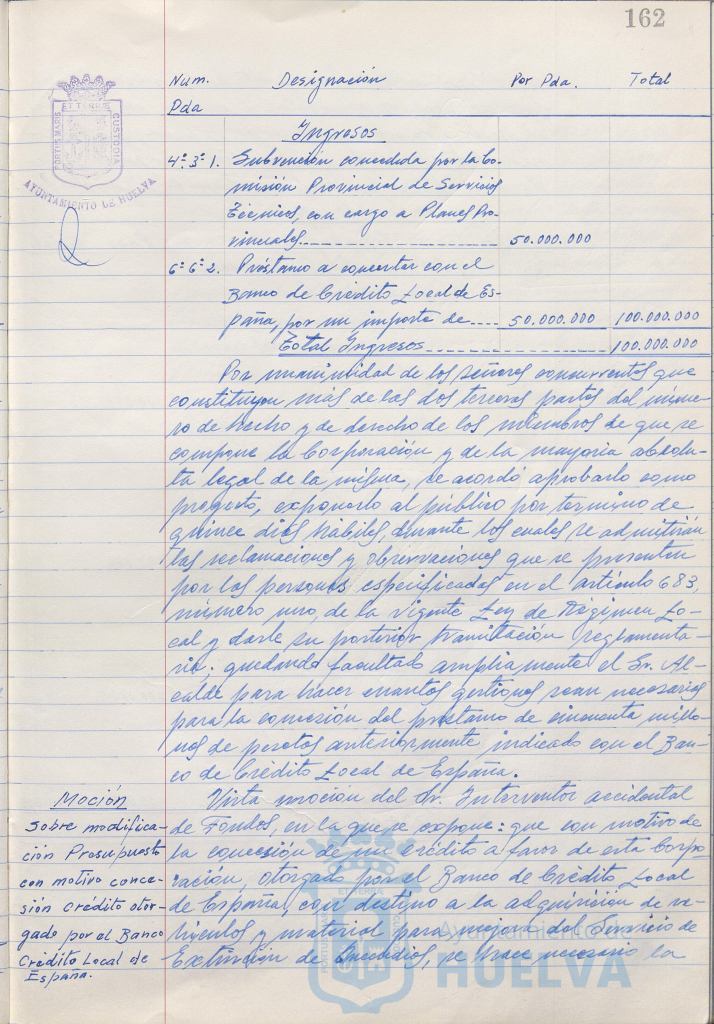 162
Num. Designación Por Pda. Total
Pda
Ingresos
4º-3º-1. Subvención concedida por la Co-
misión Provincial de Servicios
Técnicos, con cargo a Planes Pro-
vinciales 50.000.000
6º-6º-2. Préstamo a concertar con el
Banco de Crédito Local de Es-
paña, por un importe de 50.000.000 100.000.000
Total Ingresos 100.000.000
Por unanimidad de los señores concurrentes que
constituyen más de las dos terceras partes del núme-
ro de hecho y de derecho de los miembros de que se
compone la Corporación y de la mayoría absolu-
ta legal de la misma, se acordó aprobarlo como
proyecto, exponerlo al público por término de
quince días hábiles, durante los cuales se admitirán
las reclamaciones y observaciones que se presenten
por las personas especificadas en el artículo 683,
número uno, de la vigente Ley de Régimen Lo-
cal y darle su posterior tramitación reglamenta-
ria; quedando facultado ampliamente el Sr. Al-
calde para hacer cuantas gestiones sean necesarias
para la concesión del préstamo de cincuenta millo-
nes de pesetas anteriormente indicado con el Ban-
co de Crédito Local de España.
Moción
Sobre modifica-
ción Presupuesto
con motivo conce-
sión crédito otor-
gado por el Banco
Crédito Local de
España.
Vista moción del Sr. Interventor accidental
de Fondos, en la que se expone: que con motivo de
la concesión de un crédito a favor de esta Corpo-
ración, otorgado por el Banco de Crédito Local
de España, con destino a la adquisición de ve-
hículos y material para mejora del Servicio de
Extinción de Incendios, se hace necesario la
PORTUS MARIS ET TERRE CUSTODIA
AYUNTAMIENTO DE HUELVA
Ayuntamiento de
HUELVA